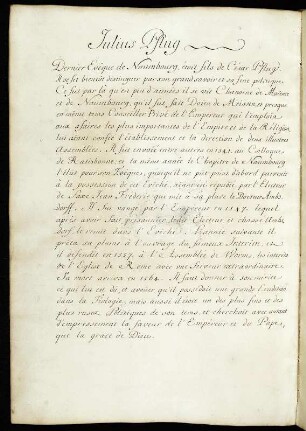 Julius Pflug
Dernier Evêque de Naumbourg, étoit fils de Cesar Pflug.
Il se fit bientôt distinguer par son grand savoir et sa fine politique.
Ce fut par là qu'en peu d'années il se vit Chanoine de Maience
et de Naumbourg, qu'il fut fait Doien de Meissen, presque
en même tems Conseiller Privé de l'Empereur qui l'emploia
aux afaires les plus importantes de l'Empire et de la Religion
lui aiant confié l'établissement et la direction de deux illustres
Assemblées. Il fut envoié entre autres en 1541. au Colloque
de Ratisbonne, et la même année le Chapitre de Naumbourg
l'élut pour son Evêque, quoiqu'il ne put puis d'abord parvenir
à la possession de cet Evêché, n'aiant été réputé par l'Electeur
de Saxe Jean Frederic qui mit à sa place le Docteur Ams-
dorff. Il fut vangé par l'Empereur en 1547. lequel
après avoir fait prisonnier ledit Electeur et chassé Ams-
dorff, le remit dans l'Evêché. L'année suivante il
prêta sa plume à l'ouvrage du fameux Interim et
il défendit en 1557. à l'Assemblée de Worms, les interêts
de l'Eglise de Rome avec une ferveur extraordinaire.
Sa mort arriva en 1564. Il faut donner à son mérite
ce qui lui est dû, et avouer qu'il possédoit une grande Erudition
dans la Théologie, mais aussi il étoit un des plus fins et des
plus rusés Politiques de son tems et cherchoit avec autant
d'empressement la faveur de l'Empereur et du Pape,
que la grace de Dieu.